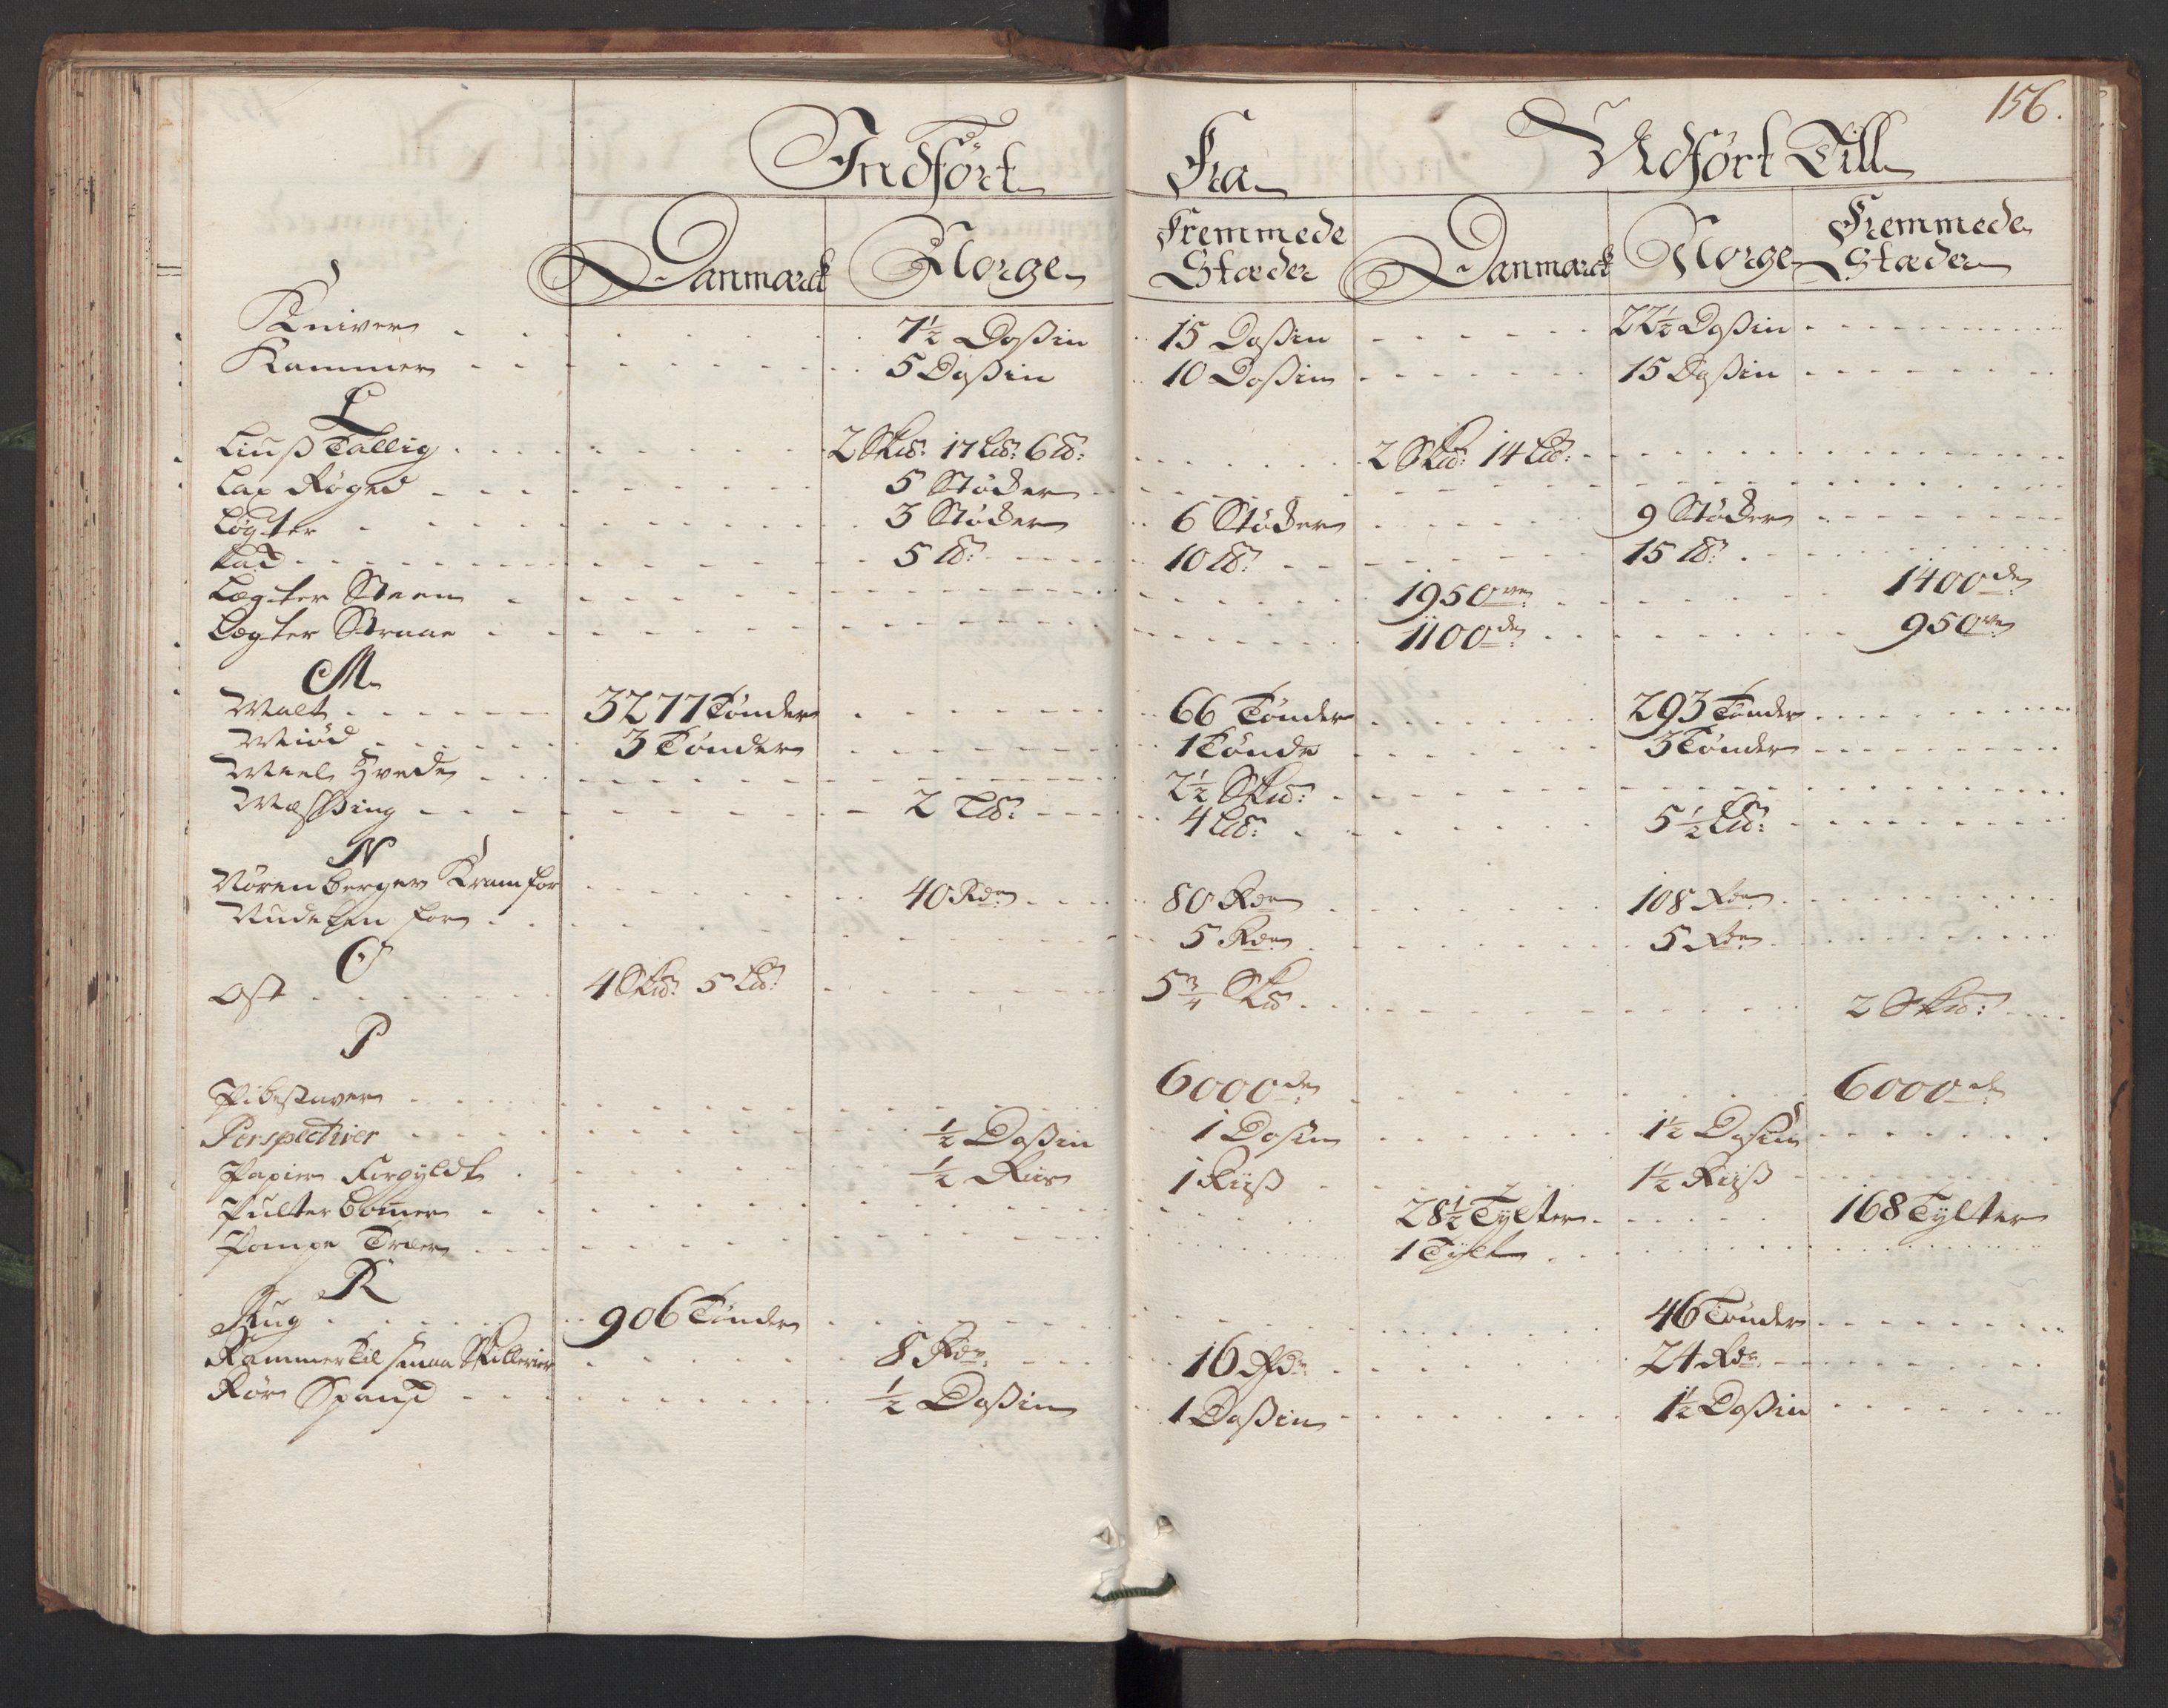 156.
Indført Fra Udført Till
Danmarck Norge Fremmede Stæder Danmarck Norge Fremmede Stæder
Kniver 7½ Doßin 15 Doßin 22½ Doßin
Kammer 5 Doßin 10 Doßin 15 Doßin
L
Liuß Tallig 2 Sk℔: 17 L℔: 6 ℔: 2 Sk℔: 14 L℔:
Lax Røged 5 Støcker
Løgter 3 Støcker 6 Støcker 9 Støcker
5 ℔: 10 ℔: 15 ℔:
Lægter Steen 1950 1400
Lægter Straae 1100 950
M
Malt 3277 Tønder 66 Tønder 293 Tønder
Miød 3 Tønder 1 Tønde 3 Tønder
Meel Hvede 2½ Sk℔:
Messing 2 L℔: 4 L℔: 5½ L℔:
N
Nørenberger Kram for 40 Rdr 80 Rdr 108 Rdr
Nudelen for 5 Rdr 5 Rdr
O
Ost 4 Sk℔: 5 L℔: 5¾ Sk℔ 2 Sk℔:
P
Pibestaver 6000 6000
Perspectiver ½ Doßin 1 Dosin 1½ Dosin
Papier Forgyldt ½ Riis 1 Riiß 1½ Riiß
Pulter Bomer 28½ Tylter 168 Tylter
Pompe Træer 1 Tylt
R
Rug 906 Tønder 46 Tønder
Rammer til smaa Skillerier 8 Rdr 16 Rdr 24 Rdr
Rør Spansk ½ Doßin 1 Doßin 1½ Doßin